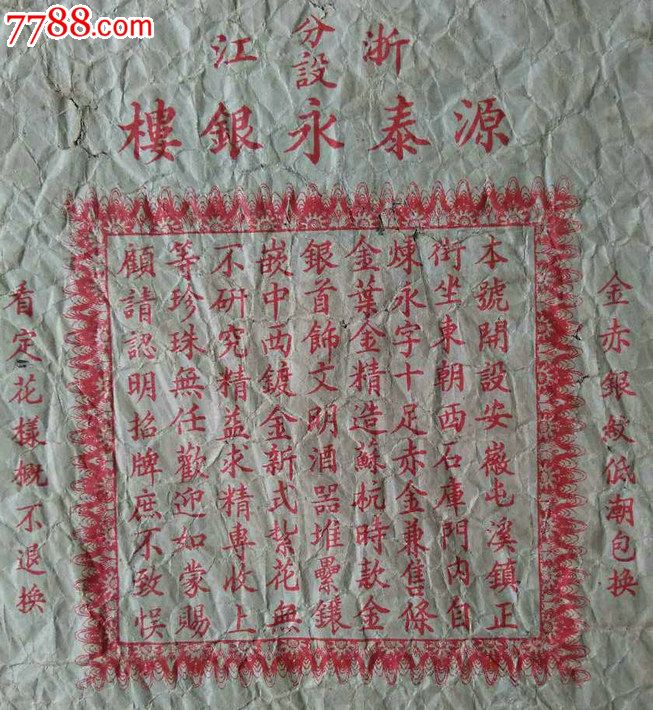 7788.com
浙江
分設
源泰永銀樓
金赤銀紋低潮包換
本號開設安徽屯溪鎮正
街坐東朝西石庫門內自
煉永字十足赤金兼售條
金葉金精造蘇杭時款金
銀首飾文明酒器堆壘鑲
嵌中西鍍金新式紮花無
不研究精益求精專收上
等珍珠無任歡迎如蒙賜
顧請認明招牌庶不致悞
看定花樣概不退換